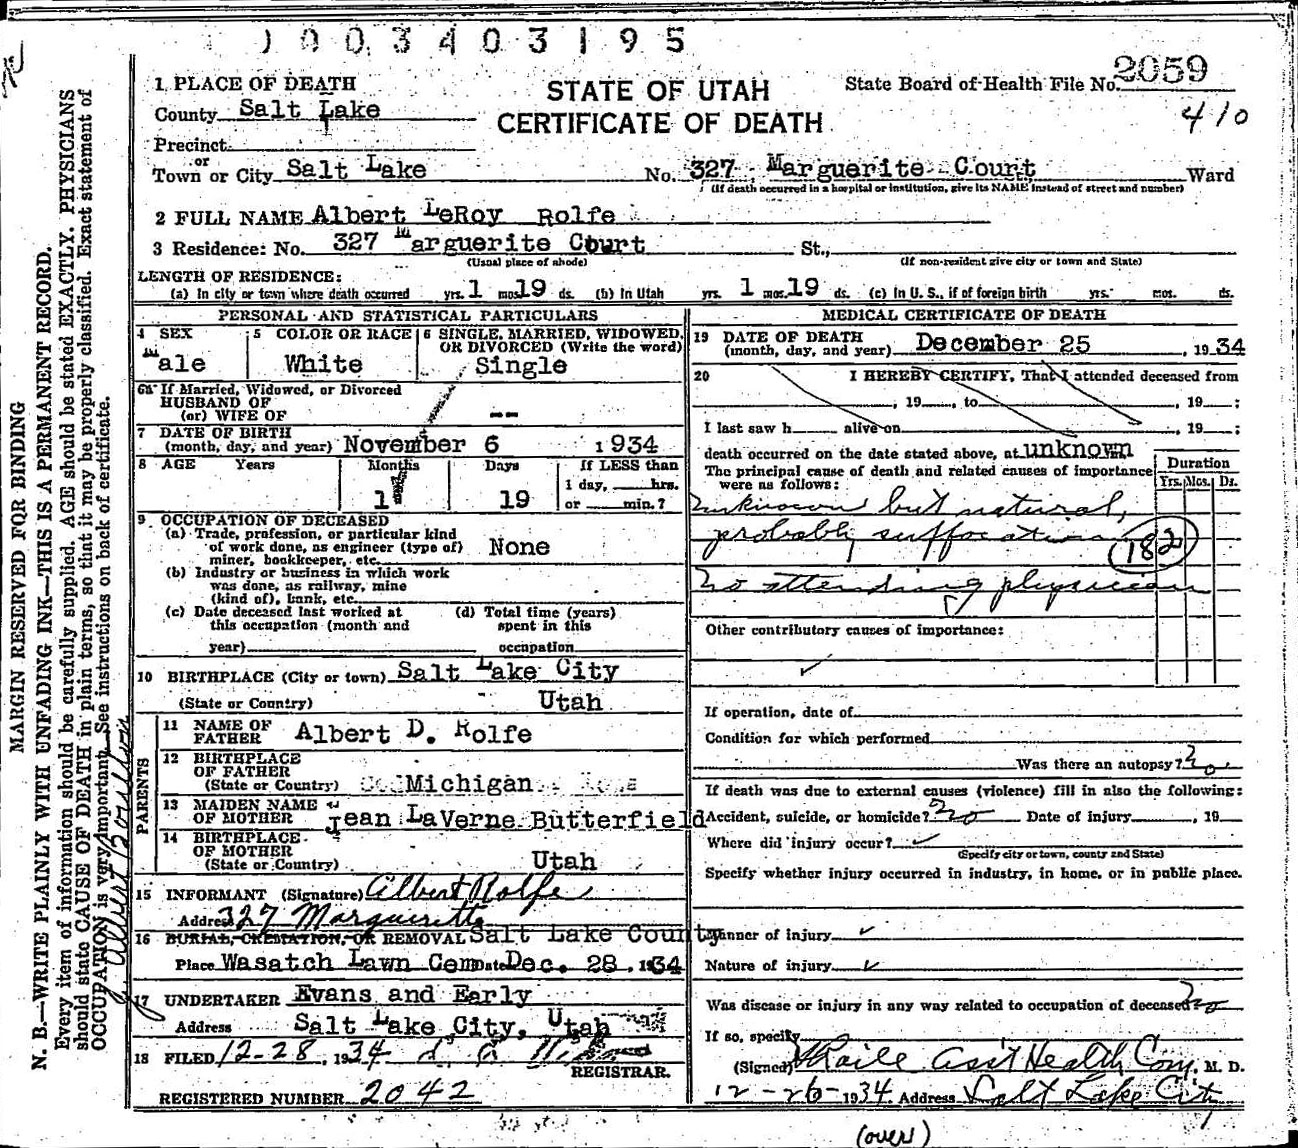 1003403195
STATE OF UTAH
CERTIFICATE OF DEATH
State Board of Health File No. 2059
410
1 PLACE OF DEATH
County Salt Lake
Precinct
or
Town or City Salt Lake No. 327 Marguerite Court Ward
(If death occurred in a hospital or institution, give its NAME instead of street and number)
2 FULL NAME Albert LeRoy Rolfe
3 Residence: No. 327 Marguerite Court St.,
(Usual place of abode) (If non-resident give city or town and State)
LENGTH OF RESIDENCE:
(a) In city or town where death occurred yrs. 1 mos. 19 ds. (b) In Utah yrs. 1 mos. 19 ds. (c) In U. S., if of foreign birth yrs. mos. ds.
PERSONAL AND STATISTICAL PARTICULARS
4 SEX Male
5 COLOR OR RACE White
6 SINGLE, MARRIED, WIDOWED, OR DIVORCED (Write the word) Single
6a If Married, Widowed, or Divorced
HUSBAND OF
(or) WIFE OF --
7 DATE OF BIRTH
(month, day, and year) November 6 1934
8 AGE Years Months Days If LESS than
1 19 1 day, hrs.
or min.?
9 OCCUPATION OF DECEASED
(a) Trade, profession, or particular kind
of work done, as engineer (type of)
miner, bookkeeper, etc. None
(b) Industry or business in which work
was done, as railway, mine
(kind of), bank, etc.
(c) Date deceased last worked at
this occupation (month and
year)
(d) Total time (years)
spent in this
occupation
10 BIRTHPLACE (City or town) Salt Lake City
(State or Country) Utah
PARENTS
11 NAME OF
FATHER Albert D. Rolfe
12 BIRTHPLACE
OF FATHER
(State or Country) Michigan
13 MAIDEN NAME
OF MOTHER Jean LaVerne Butterfield
14 BIRTHPLACE
OF MOTHER
(State or Country) Utah
15 INFORMANT (Signature) Albert Rolfe
Address 327 Marguerite
16 BURIAL, CREMATION, OR REMOVAL Salt Lake County
Place Wasatch Lawn Cem Date Dec. 28, 1934
17 UNDERTAKER Evans and Early
Address Salt Lake City, Utah
18 FILED 12-28, 1934
REGISTRAR.
REGISTERED NUMBER 2042
MEDICAL CERTIFICATE OF DEATH
19 DATE OF DEATH
(month, day, and year) December 25, 1934
20 I HEREBY CERTIFY, That I attended deceased from
, 19 , to , 19 ;
I last saw h alive on , 19 ;
death occurred on the date stated above, at unknown
The principal cause of death and related causes of importance
were as follows:
Duration
Yrs. Mos. Ds.
Unknown but natural,
probably suffocation
182
No attending physician
Other contributory causes of importance:
If operation, date of
Condition for which performed
Was there an autopsy? No
If death was due to external causes (violence) fill in also the following:
Accident, suicide, or homicide? No Date of injury , 19
Where did injury occur?
(Specify city or town, county and State)
Specify whether injury occurred in industry, in home, or in public place.
Manner of injury
Nature of injury
Was disease or injury in any way related to occupation of deceased? No
If so, specify
(Signed) Ass't Health Com, M. D.
12-26-1934 Address Salt Lake City
(over)
MARGIN RESERVED FOR BINDING
N. B.—WRITE PLAINLY WITH UNFADING INK—THIS IS A PERMANENT RECORD.
Every item of information should be carefully supplied. AGE should be stated EXACTLY. PHYSICIANS
should state CAUSE OF DEATH in plain terms, so that it may be properly classified. Exact statement of
OCCUPATION is very important. See instructions on back of certificate.